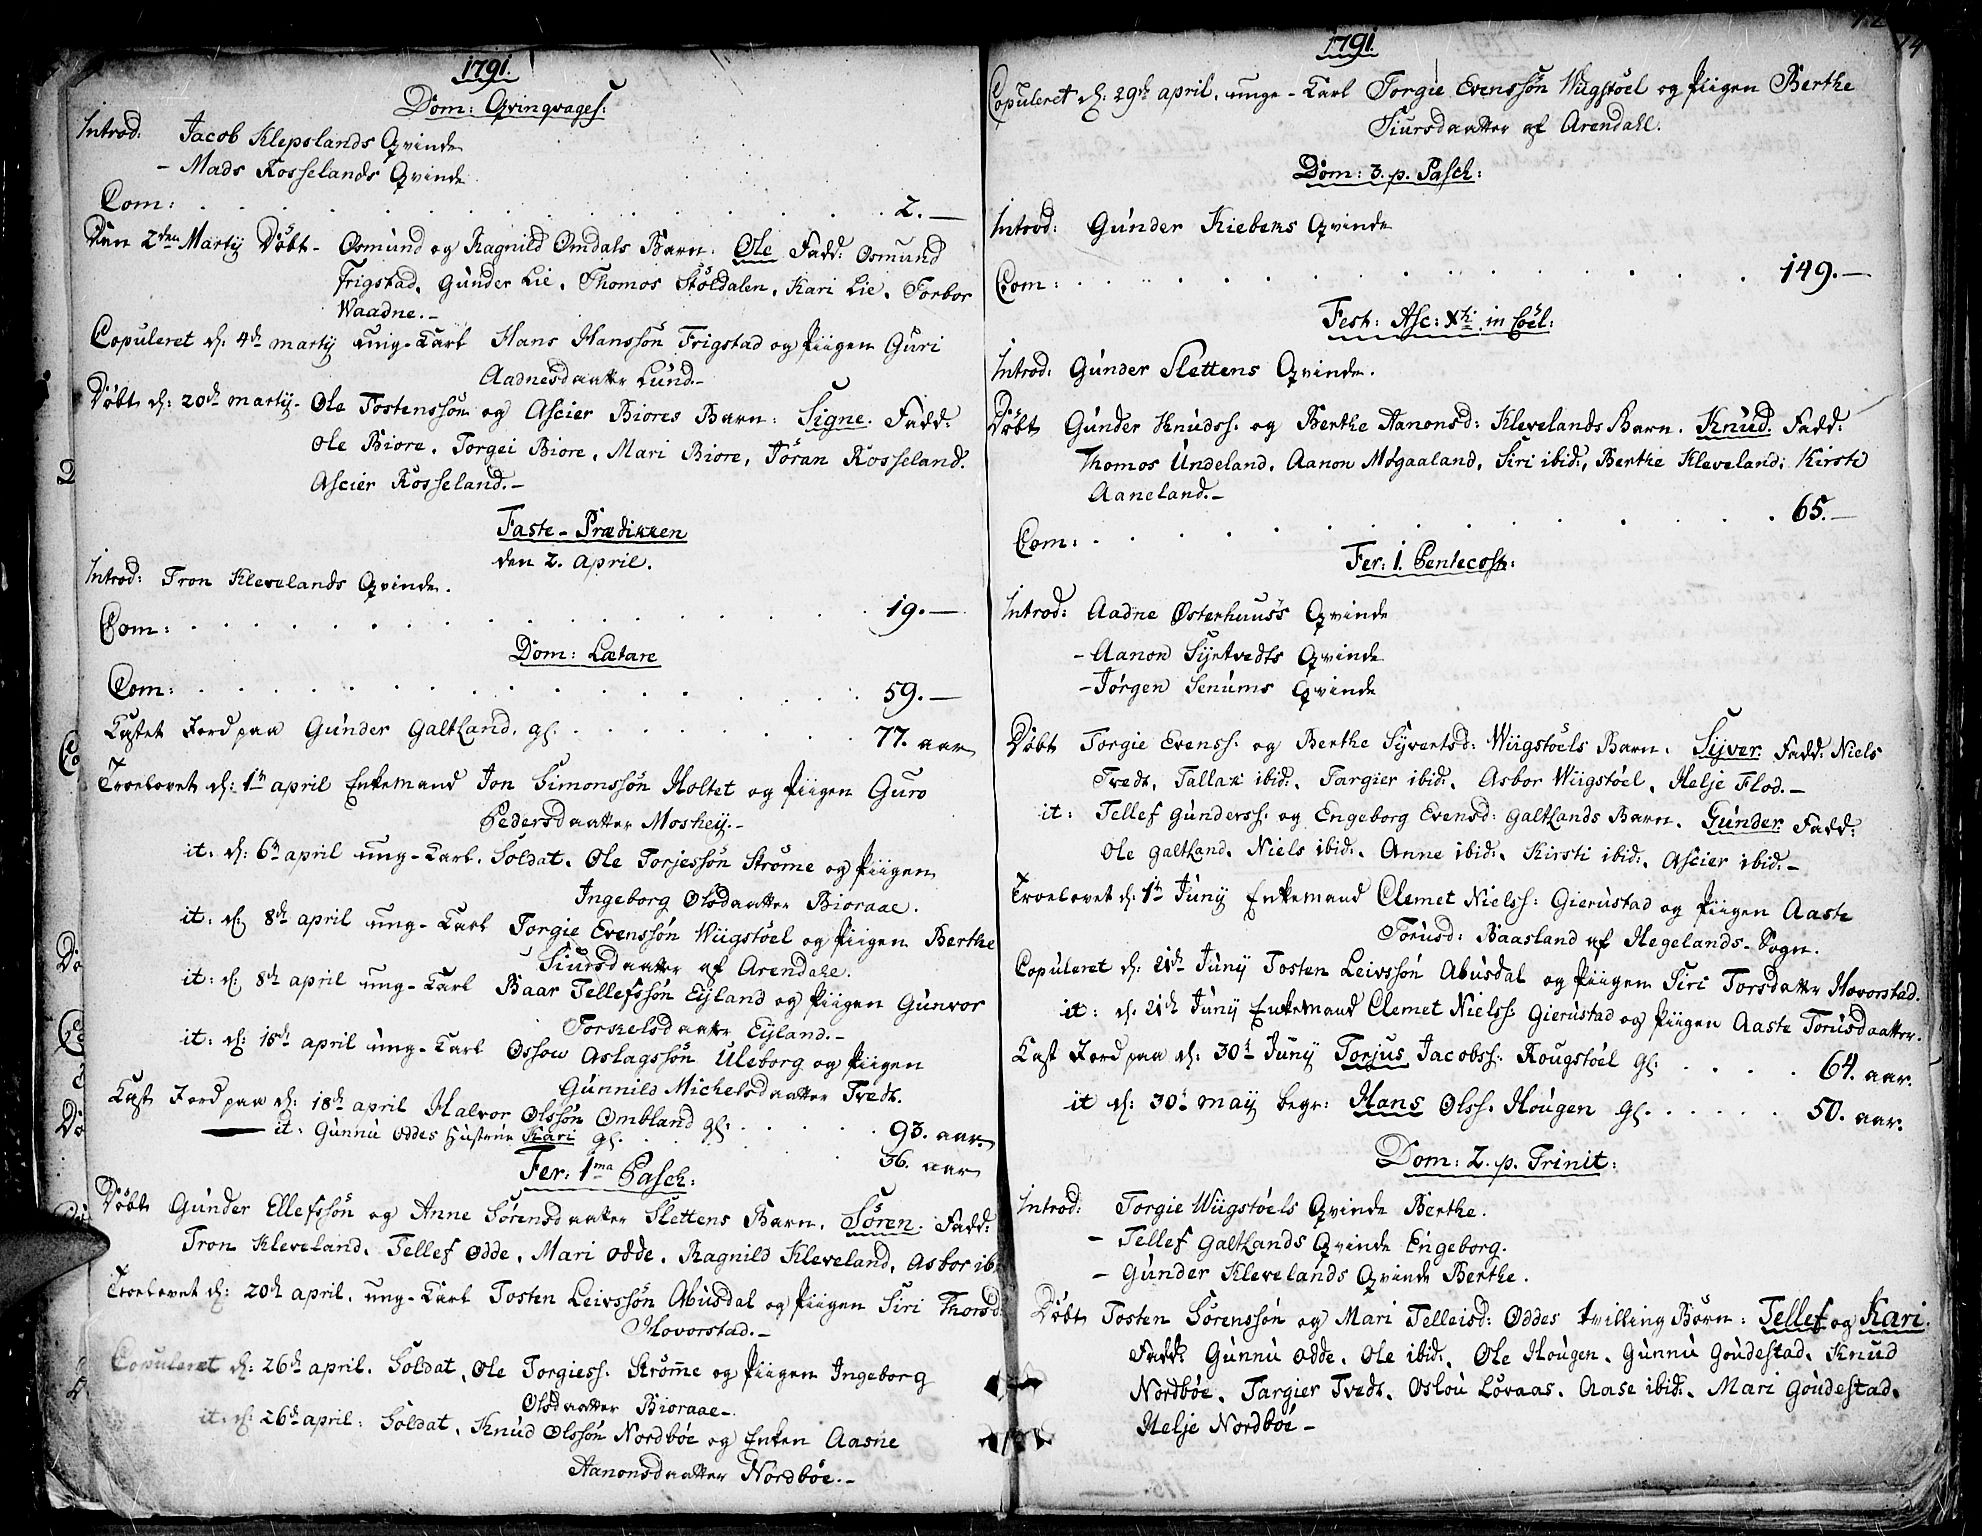 1791.
Dom: Qvinqvages:
Introd: Jacob Klepslands Qvinde
- Mads Rosselands Qvinde
Com: 2.-
Den 2den Martij Døbt- Osmund og Ragnild Omdals Barn: Ole Fadd: Osmund
Frigstad, Gunder Lie, Thomos Støldalen, Kari Lie, Torbor
Waadne.-
Copuleret d: 4de martij ung-Karl Hans Hanssøn Frigstad og Piigen Guri
Aadnesdaatter Lund.-
Døbt d: 20de martij- Ole Tostenssøn og Ascier Biores Barn: Signe. Fadd:
Ole Biore, Torgei Biore, Mari Biore, Jöran Rosseland.
Ascier Rosseland.-
Faste-Prædikken
den 2. April.
Introd: Tron Klevelands Qvinde.
Com: 19.-
Dom: Lætare
Com: 59.-
Kastet Jord paa Gunder Galtland, gl. 77. aar
Troelovet d: 1te april Enkemand Jon Simonssøn Holtet og Piigen Guro
Pedersdaatter Moshey.-
it: d: 6te april ung-Karl. Soldat, Ole Torjessøn Strøme og Piigen
Ingeborg Olsdaatter Bioraae.
it: d: 8de april ung-Karl Torgie Evenssøn Wiigstøel og Piigen Berthe
Siursdaatter af Arendahl.
it: d: 8de april ung-Karl Baar Tellefssøn Eyland og Piigen Gunvor
Torkelsdaatter Eyland.-
it: d: 15de april ung-Karl Ossow Aslagssøn Uleborg og Piigen
Gunnild Michelsdaatter Tvedt.
Kast Jord paa d: 18de april Halvor Olssøn Ombland gl. 93. aar
it: Gunnu Oddes Hustrue Kari gl. 36. aar
Fer: 1ma Pasch:
Døbt Gunder Ellefssøn og Anne Sørensdaatter Slettens Barn, Søren. Fadd:
Tron Kleveland, Tellef Odde, Mari Odde, Ragnild Kleveland, Asbor ib:
Troelovet d: 20de april, ung-Karl Tosten Leivssøn Abusdal og Piigen Siri Thorsd
Hovorstad.-
Copuleret d: 26de april. Soldat, Ole Torgiess. Strøme og Piigen Ingeborg
Olsdaatter Bioraae-
it: d: 26de april: Soldat, Knud Olssøn Nordbøe og Enken Aasne
Aanonsdaatter Nordbøe.-
14
1791.
Copuleret d: 29de april, unge-Karl Torgie Evenssøn Wiigstøel og Piigen Berthe
Siursdaatter af Arendahl.
Dom: 3. p. Pasch:
Introd: Gunder Kiebens Qvinde
Com: 149.-
Fest: Asc: Xti in Coel:
Introd: Gunder Slettens Qvinde.
Døbt Gunder Knudss: og Berthe Aanonsd: Klevelands Barn. Knud. Fadd:
Thomos Undeland, Aanon Møgaaland, Siri ibid:, Berthe Kleveland: Kirsti
Aaneland.-
Com: 65.-
Fer: 1. Pentecost:
Introd: Aadne Østerhuus's Qvinde
- Aanon Syrtvedts Qvinde
- Jørgen Senums Qvinde
Døbt Torgie Evenss: og Berthe Syvertsd: Wiigstøels Barn. Syver. Fadd: Niels
Tvedt, Tallak ibid:, Targier ibid:, Asbor Wiigstøel, Helje Flod.-
it: Tellef Gunderss: og Engeborg Evensd: Galtlands Barn. Gunder Fadd:
Ole Galtland, Niels ibid:, Anne ibid:, Kirsti ibid:, Ascier ibid.-
Troelovet d: 1te Juny Enkemand Clemet Nielss: Gierustad og Piigen Aaste
Torusd: Baasland af Hegelands-Sogn.
Copuleret d: 21de Juny Tosten Leivssøn Abusdal og Piigen Siri Torsdatter Hovorstad.
it: d: 21de Juny Enkemand Clemet Nielss: Gierustad og Piigen Aaste Torusdaatter.
Kast Jord paa d: 30te Juny Torjus Jacobss: Rougstøel gl. 64. aar.
it d: 30te may begr: Hans Olss: Hougen gl. 50. aar.
Dom: 2. p. Trinit:
Introd: Torgie Wiigstøels Qvinde Berthe.
- Tellef Galtlands Qvinde Engeborg.
- Gunder Klevelands Qvinde Berthe.
Døbt Tosten Sørenssøn og Mari Telleisd: Oddes tvilling Børn: Tellef og Kari.
Fadd: Gunnu Odde, Ole ibid:, Ole Hougen, Gunnu Goudestad, Knud
Nordbøe, Targier Tvedt, Oslou Løvaas, Aase ibid:, Mari Goudestad,
Helje Nordbøe-